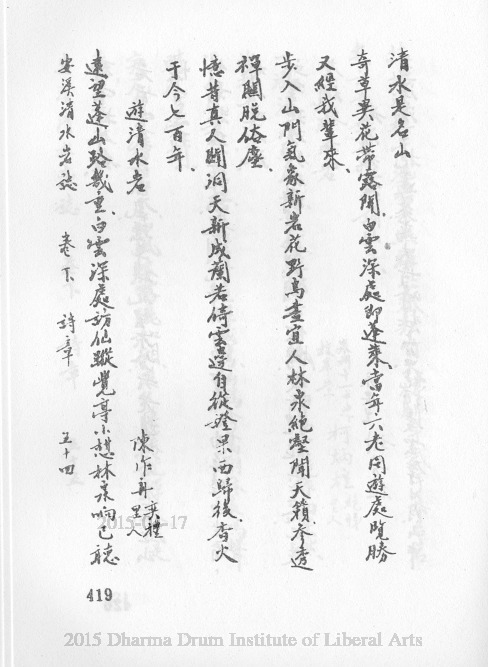 清水是名山
奇草異花帶露開、白雲深處即蓬萊、當年六老同遊處、覽勝
又經我輩來、
步入山門氣象新、岩花野鳥盡宜人、林泉絕壑聞天籟、參透
禪關脫俗塵、
憶昔真人闢洞天、新成蘭若倚雲邊、自從證果西歸後、香火
于今七百年、
遊清水岩
陳作舟 崇禮里人
遠望蓬山路幾重、白雲深處訪仙蹤、覺亭小憩林泉响、已聽
安溪清水岩誌 卷下 詩章 五十四
2015-04-17
419
2015 Dharma Drum Institute of Liberal Arts